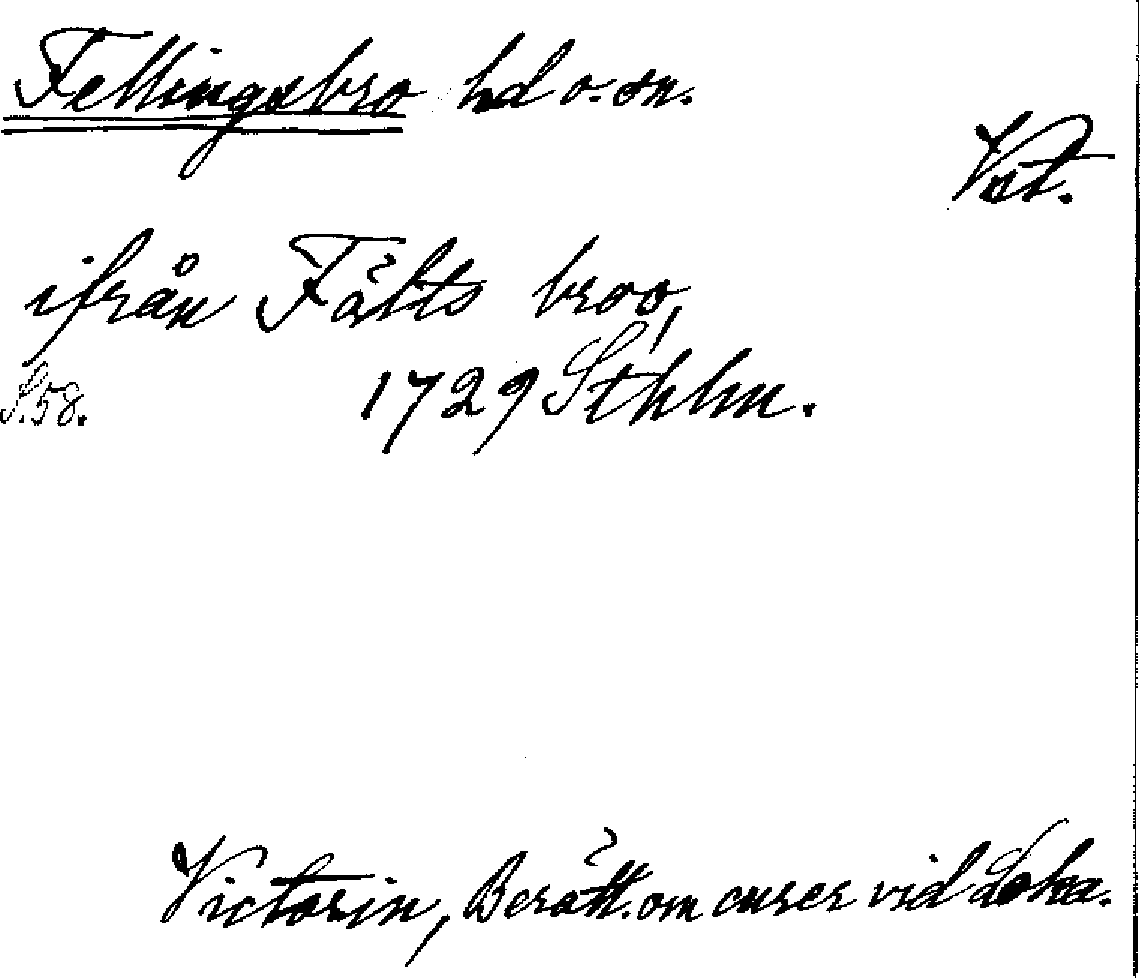 Fellingsbro hd o. sn.
Vst.
ifrån Fälts broo,
S. 58. 1729 Sthlm.
Victorin, Berätt. om curer vid Loka.